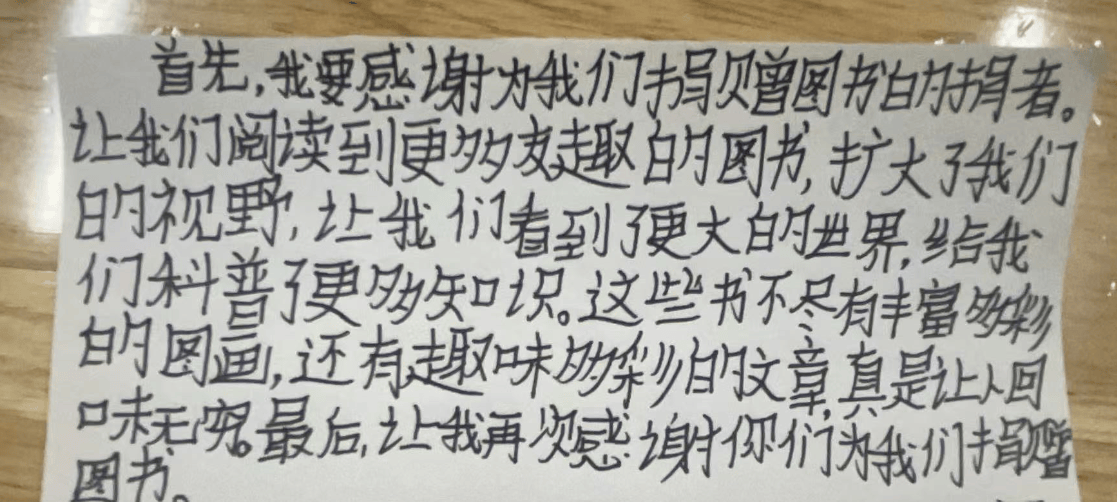 首先,我要感谢为我们捐贝赠图书的捐者。
让我们阅读到更多友趣的图书,扩大了我们
的视野,让我们看到了更大的世界,给我
们科普了更多知识。这些书不尽有丰富多彩
的图画,还有趣味多彩的文章,真是让人回
味无穷。最后,让我再次感谢你们为我们捐赠
图书。